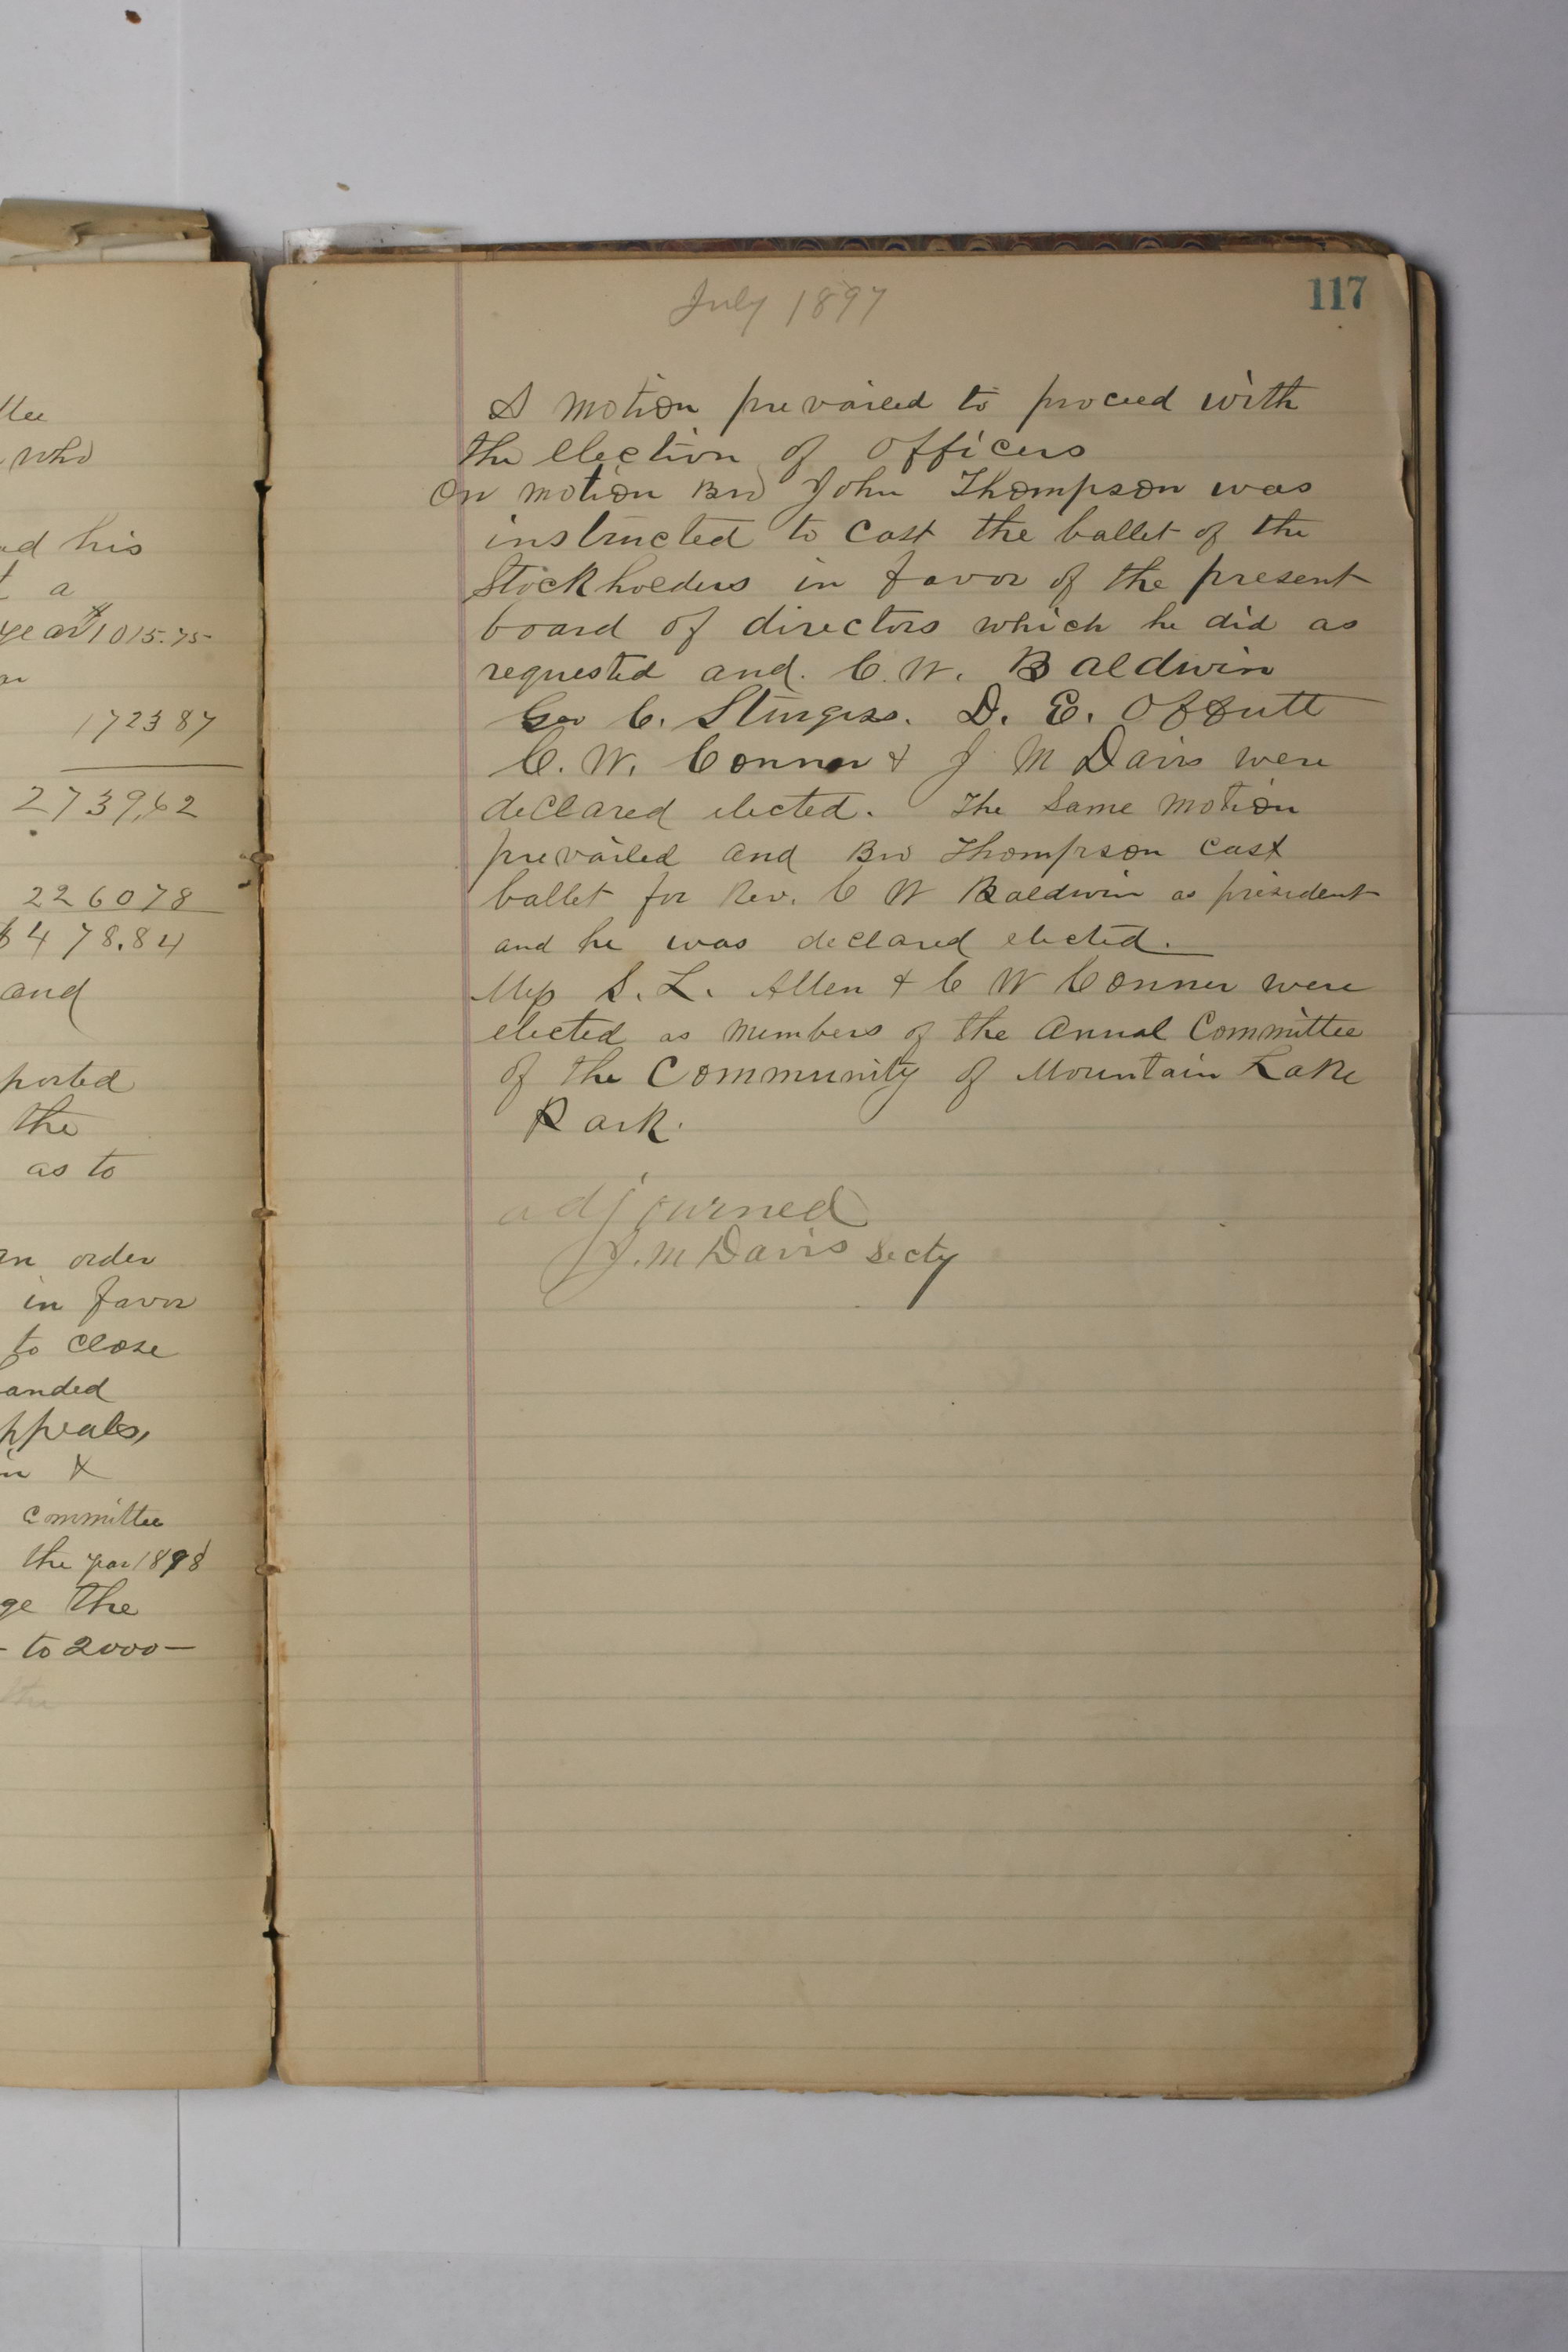 llee
who
ed his
t a
year $1015.75
172387
2739,62
226078
$478.84
and
ported
the
as to
an order
in favor
to close
anded
ppeals,
in &
committee
the year 1898
ge the
- to 2000 -
the
July 1897
117
A motion prevailed to proceed with
the election of officers
On motion Bro John Thompson was
instructed to cast the ballet of the
Stockholders in favor of the present
board of directors which he did as
requested and. C. W. Baldwin
Geo C. Sturgiss. D. E. Offutt
C. W. Conner & J M Davis were
declared elected. The same motion
prevailed and Bro Thompson cast
ballet for Rev. C W Baldwin as president
and he was declared elected.
S. L. Allen & C W Conner were
elected as members of the Annual Committee
of the Community of Mountain Lake
Park.
adjourned
J. M Davis Secty